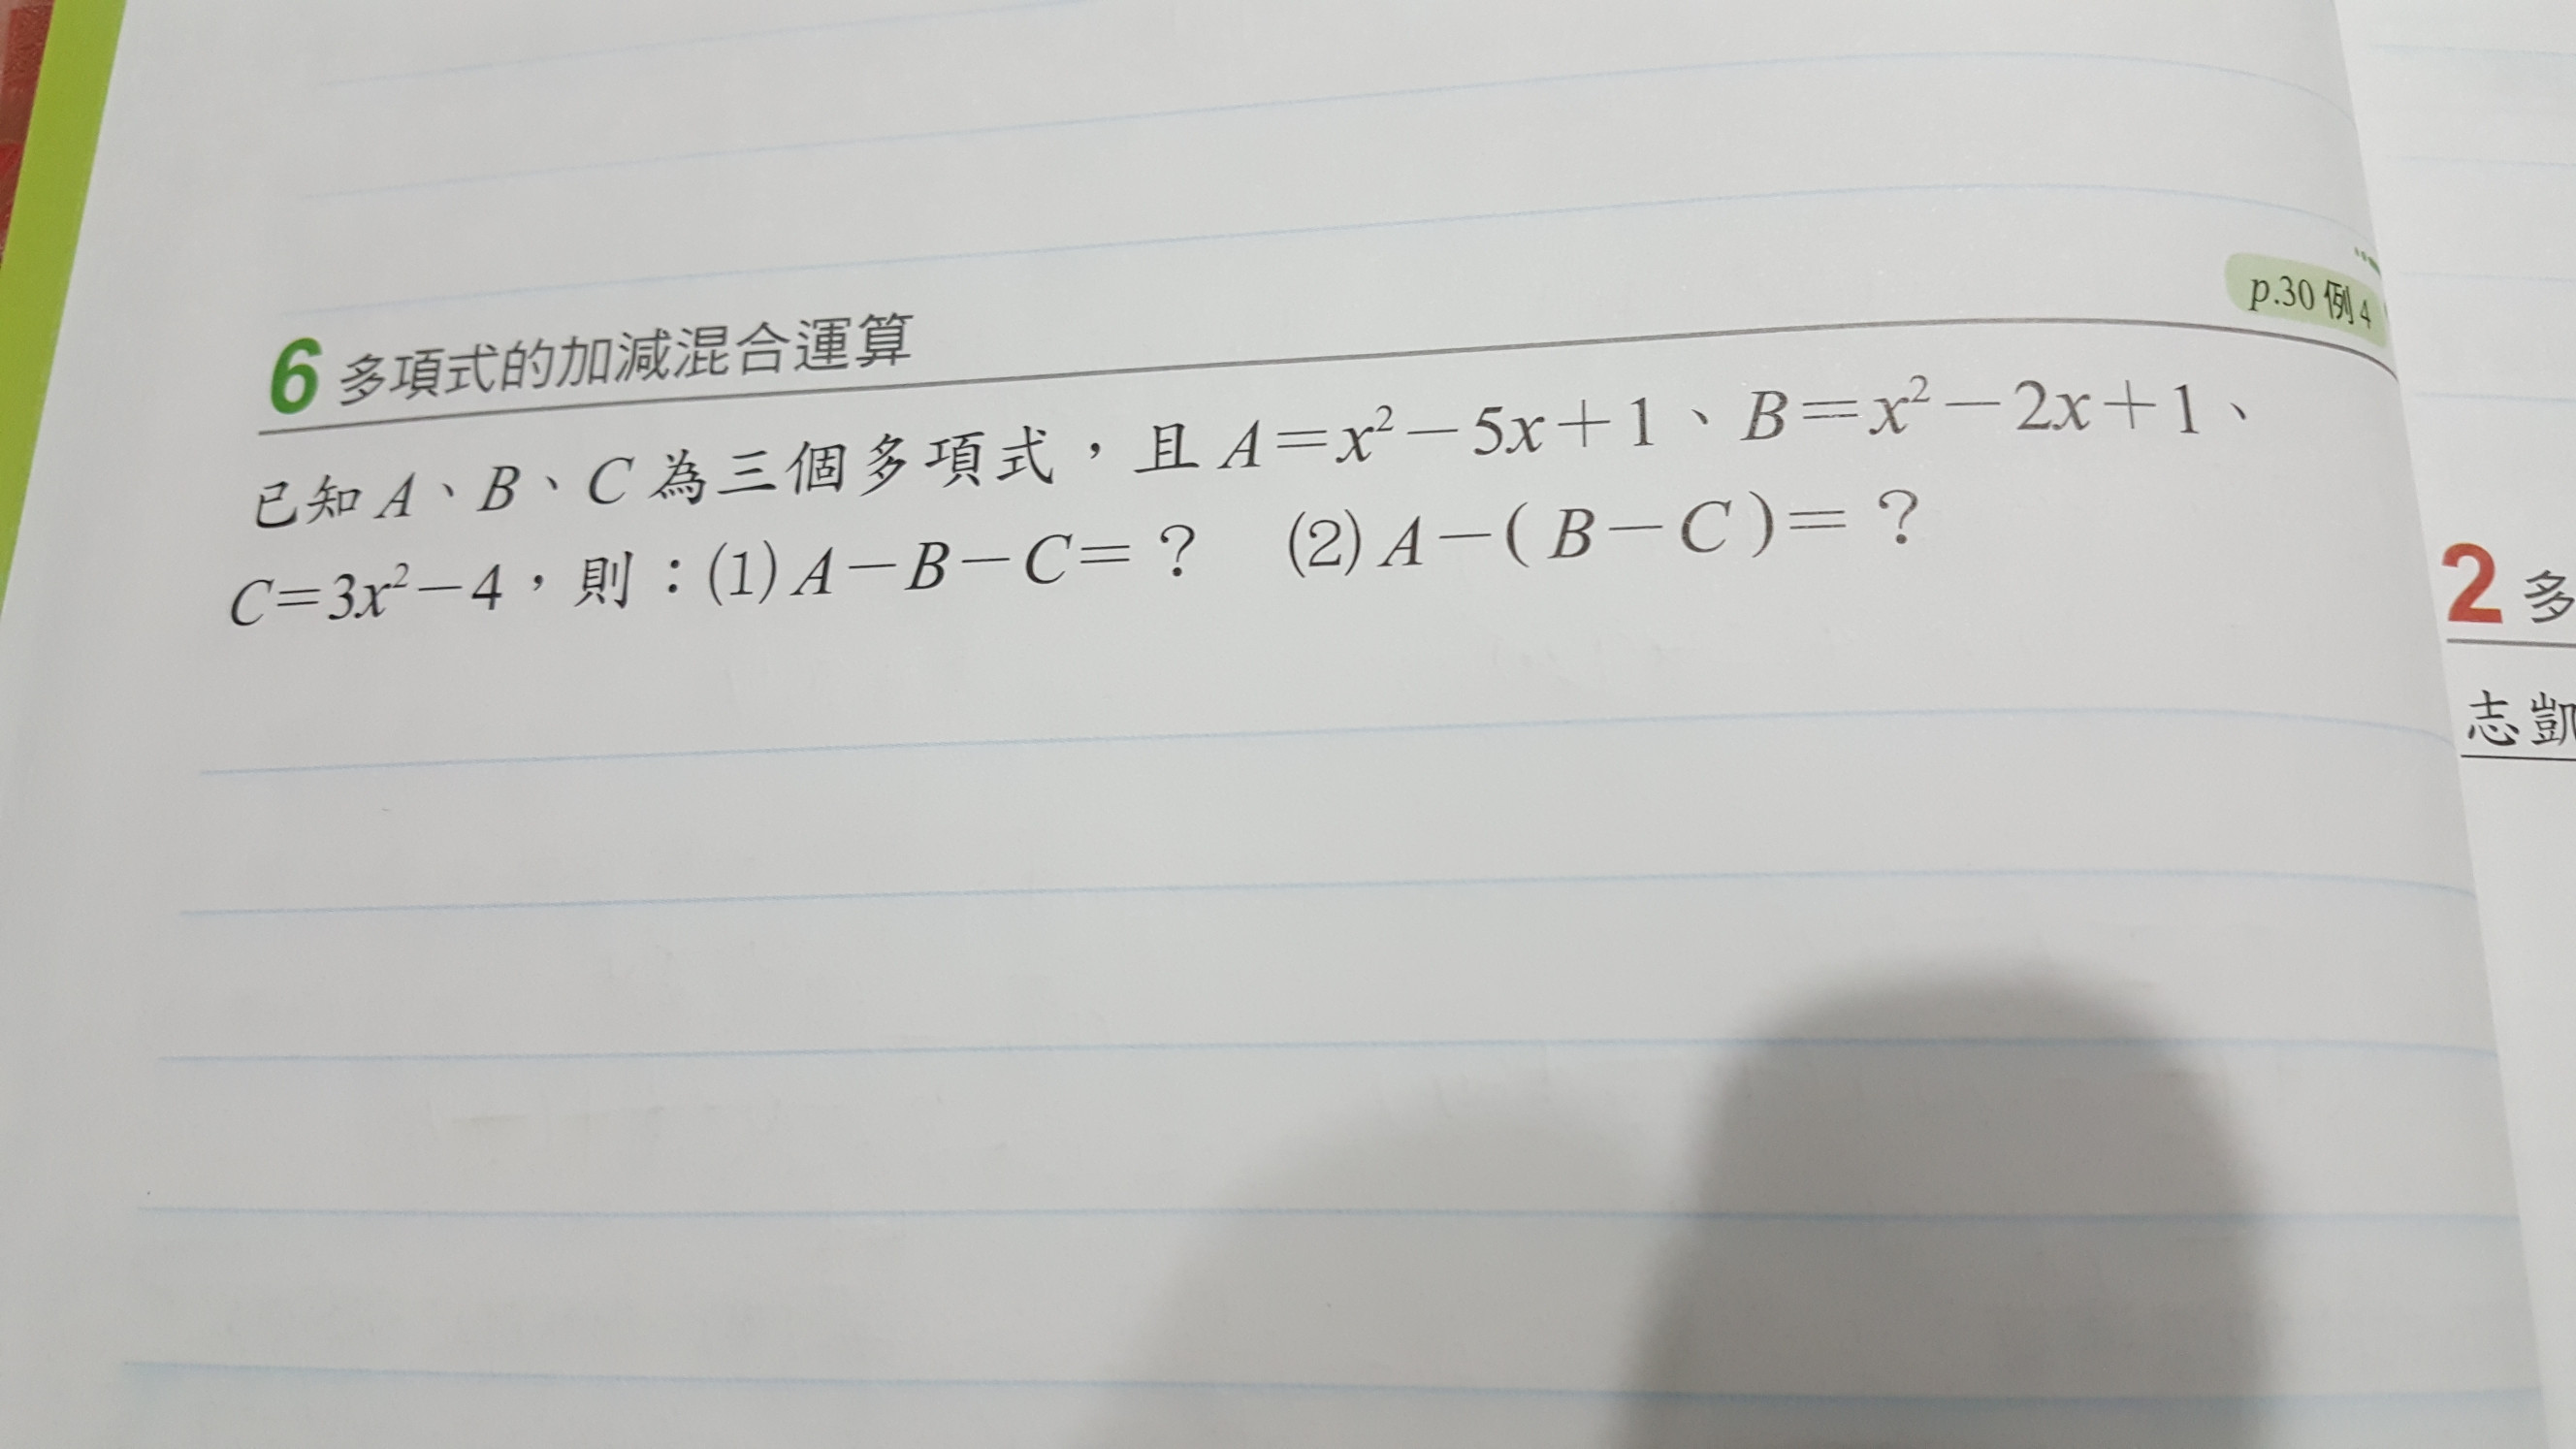 p.30 例4
6 多項式的加減混合運算
已知 A、B、C 為三個多項式，且 A＝x²－5x＋1、B＝x²－2x＋1、
C＝3x²－4，則：(1) A－B－C＝？ (2) A－( B－C )＝？
2 多
志凱